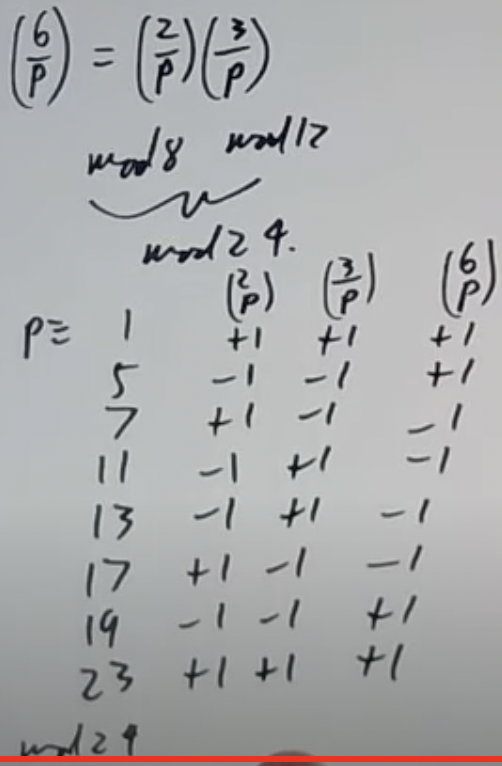 (6/p) = (2/p)(3/p)
mod 8 mod 12
mod 24.
(2/p) (3/p) (6/p)
p≡ 1 +1 +1 +1
5 -1 -1 +1
7 +1 -1 -1
11 -1 +1 -1
13 -1 +1 -1
17 +1 -1 -1
19 -1 -1 +1
23 +1 +1 +1
mod 24